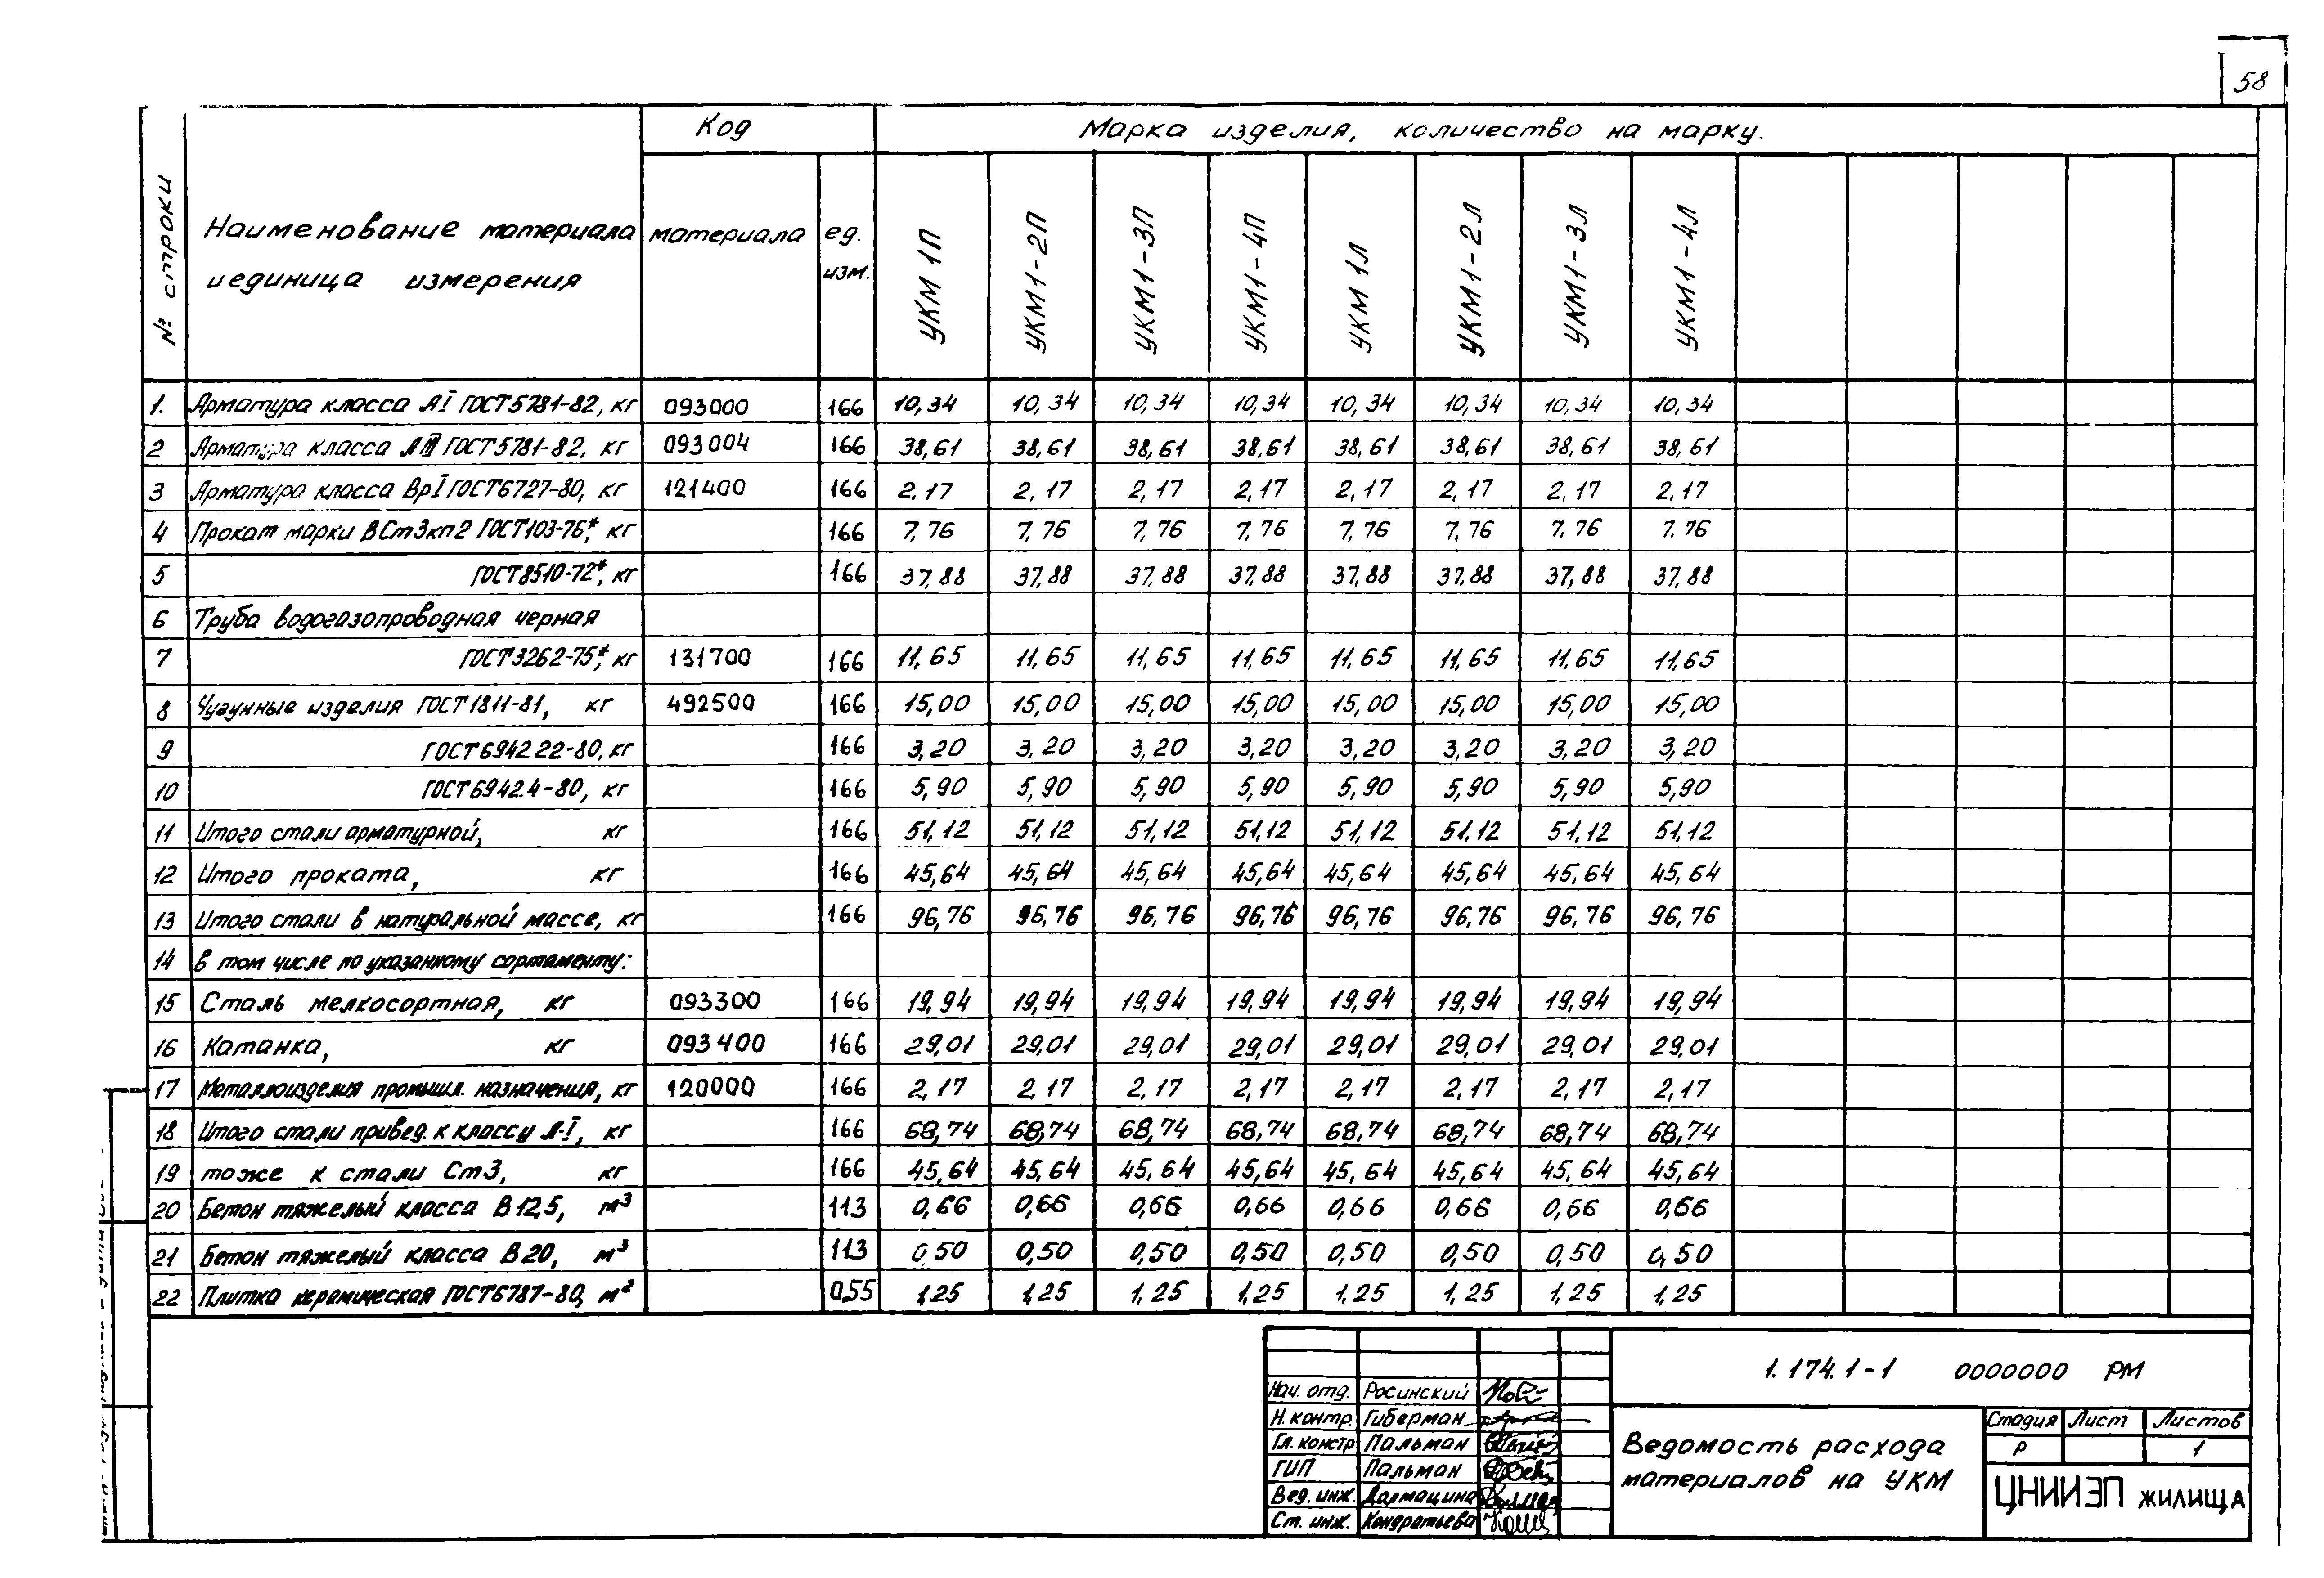 58
Код
Марка изделия, количество на марку.
№ строки
Наименование материала
и единица измерения
материала
ед.
изм.
УКМ 1П
УКМ1-2П
УКМ1-3П
УКМ1-4П
УКМ 1Л
УКМ1-2Л
УКМ1-3Л
УКМ1-4Л
1. Арматура класса АI ГОСТ5781-82, кг 093000 166 10,34 10,34 10,34 10,34 10,34 10,34 10,34 10,34
2 Арматура класса АIII ГОСТ5781-82, кг 093004 166 38,61 38,61 38,61 38,61 38,61 38,61 38,61 38,61
3 Арматура класса ВрI ГОСТ6727-80, кг 121400 166 2,17 2,17 2,17 2,17 2,17 2,17 2,17 2,17
4 Прокат марки ВСт3кп2 ГОСТ103-76*, кг 166 7,76 7,76 7,76 7,76 7,76 7,76 7,76 7,76
5 ГОСТ8510-72*, кг 166 37,88 37,88 37,88 37,88 37,88 37,88 37,88 37,88
6 Труба водогазопроводная черная
7 ГОСТ3262-75*, кг 131700 166 11,65 11,65 11,65 11,65 11,65 11,65 11,65 11,65
8 Чугунные изделия ГОСТ1811-81, кг 492500 166 15,00 15,00 15,00 15,00 15,00 15,00 15,00 15,00
9 ГОСТ6942.22-80, кг 166 3,20 3,20 3,20 3,20 3,20 3,20 3,20 3,20
10 ГОСТ6942.4-80, кг 166 5,90 5,90 5,90 5,90 5,90 5,90 5,90 5,90
11 Итого стали арматурной, кг 166 51,12 51,12 51,12 51,12 51,12 51,12 51,12 51,12
12 Итого проката, кг 166 45,64 45,64 45,64 45,64 45,64 45,64 45,64 45,64
13 Итого стали в натуральной массе, кг 166 96,76 96,76 96,76 96,76 96,76 96,76 96,76 96,76
14 в том числе по указанному сортаменту:
15 Сталь мелкосортная, кг 093300 166 19,94 19,94 19,94 19,94 19,94 19,94 19,94 19,94
16 Катанка, кг 093400 166 29,01 29,01 29,01 29,01 29,01 29,01 29,01 29,01
17 Металлоизделия промышл. назначения, кг 120000 166 2,17 2,17 2,17 2,17 2,17 2,17 2,17 2,17
18 Итого стали привед. к классу А-I, кг 166 68,74 68,74 68,74 68,74 68,74 68,74 68,74 68,74
19 тоже к стали Ст3, кг 166 45,64 45,64 45,64 45,64 45,64 45,64 45,64 45,64
20 Бетон тяжелый класса В12,5, м³ 113 0,66 0,66 0,66 0,66 0,66 0,66 0,66 0,66
21 Бетон тяжелый класса В20, м³ 113 0,50 0,50 0,50 0,50 0,50 0,50 0,50 0,50
22 Плитка керамическая ГОСТ6787-80, м² 055 1,25 1,25 1,25 1,25 1,25 1,25 1,25 1,25
1.174.1-1 0000000 РМ
Нач. отд. Росинский
Н. контр. Гиберман
Гл. констр Пальман
ГИП Пальман
Вед. инж. Далмацина
Ст. инж. Кондратьева
Ведомость расхода
материалов на УКМ
Стадия Лист Листов
Р 1
ЦНИИЭП жилища